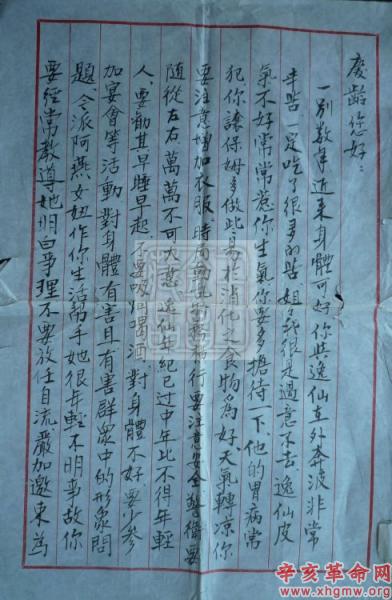 慶齡您好：
一别数年近来身體可好你與逸仙在外奔波非常
辛苦一定吃了很多的苦姐我很是過意不去逸仙皮
氣不好常常惹你生氣你要多擔待一下他的胃病常
犯你讓保姆多做些易於消化之食物為好天氣轉凉你
要注意增加衣服時局萬
行要注意安全警衛要
随從左右萬萬不可大意逸仙年纪已过中年比不得年輕
人要勸其早睡早起不要吸烟喝酒對身體不好要少参
加宴會等活動對身體有害且有害群眾中的形象問
題令派阿燕女妞作你生活助手她很年輕不明事故你
要經常教導她明白事理不要放任自流嚴加邀束為
辛亥革命网
www.xhgmw.org